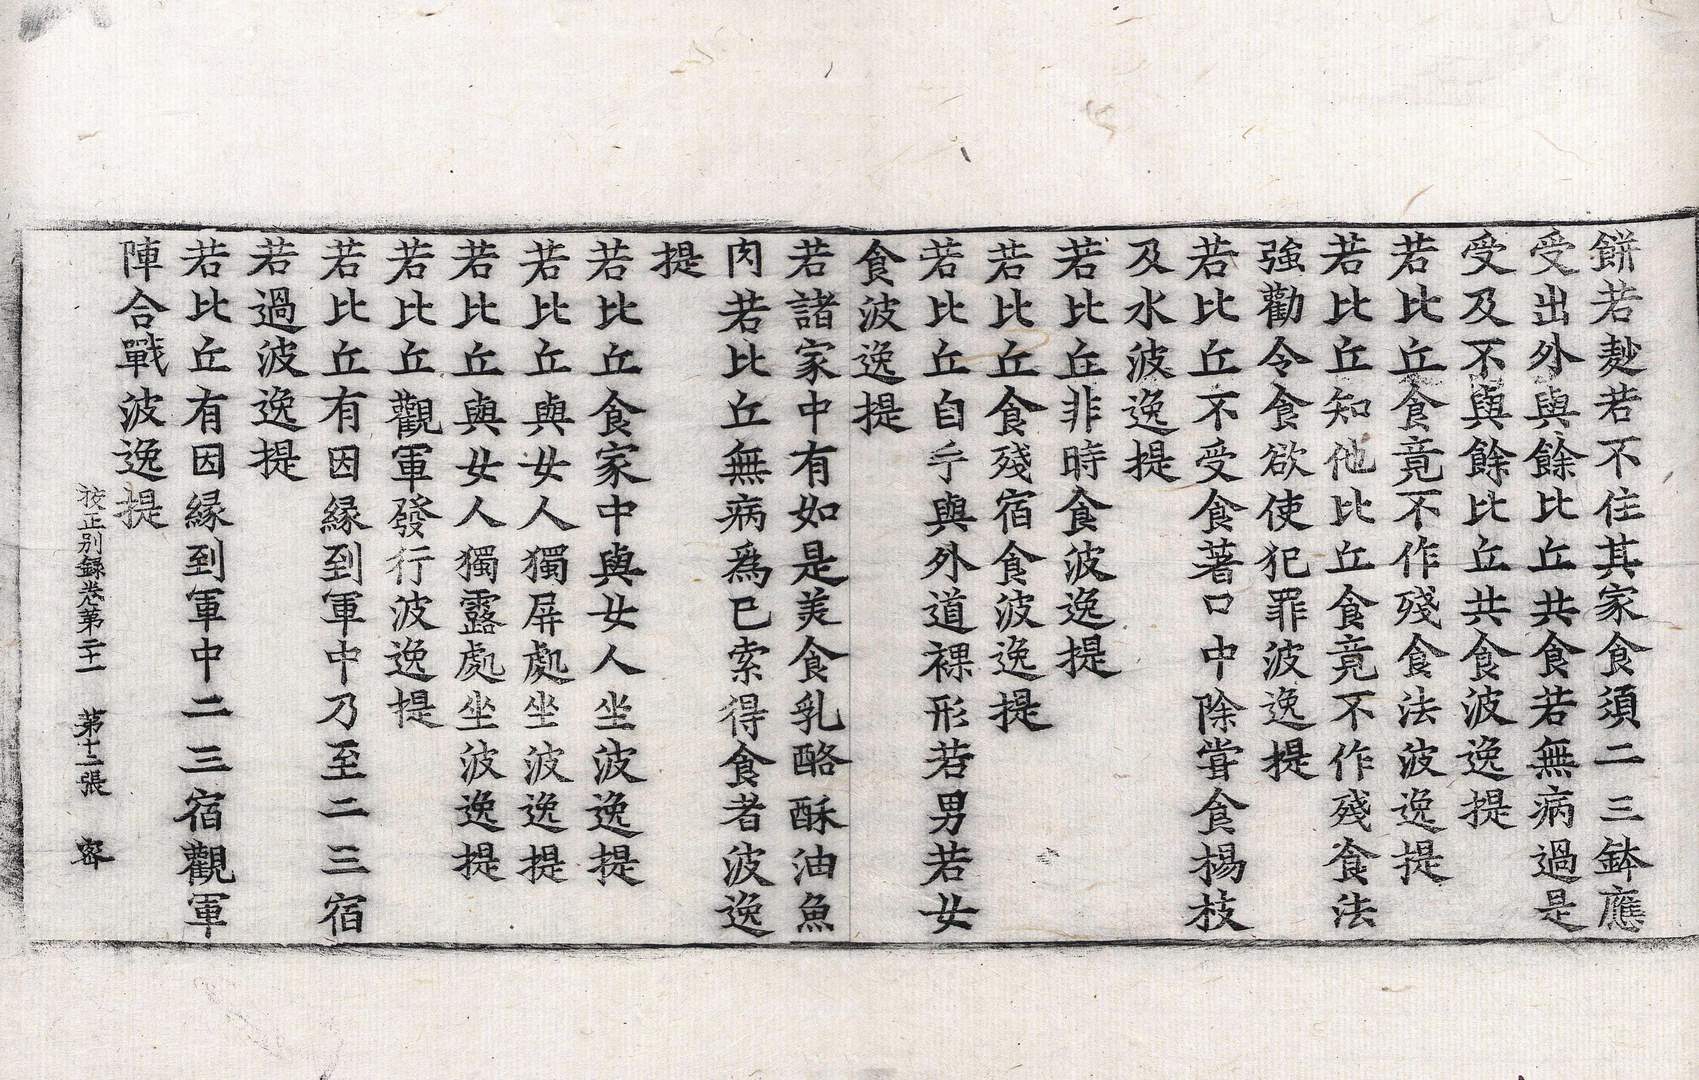 餅若麨若不住其家食須二三鉢應
受出外與餘比丘共食若無病過是
受及不與餘比丘共食波逸提
若比丘食竟不作殘食法波逸提
若比丘知他比丘食竟不作殘食法
強勸令食欲使犯罪波逸提
若比丘不受食著口中除甞食楊枝
及水波逸提
若比丘非時食波逸提
若比丘食殘宿食波逸提
若比丘自手與外道裸形若男若女
食波逸提
若諸家中有如是美食乳酪酥油魚
肉若比丘無病爲已索得食者波逸
提
若比丘食家中與女人坐波逸提
若比丘與女人獨屏處坐波逸提
若比丘與女人獨露處坐波逸提
若比丘觀軍發行波逸提
若比丘有因緣到軍中乃至二三宿
若過波逸提
若比丘有因緣到軍中二三宿觀軍
陣合戰波逸提
校正別錄卷第二十一 第十二張 密